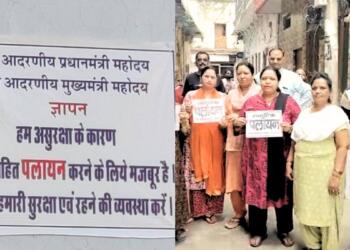 आदरणीय प्रधानमंत्री महोदय
आदरणीय मुख्यमंत्री महोदय
ज्ञापन
हम असुरक्षा के कारण
हित पलायन करने के लिये मजबूर है
हमारी सुरक्षा एवं रहने की व्यवस्था करें।
पलायन